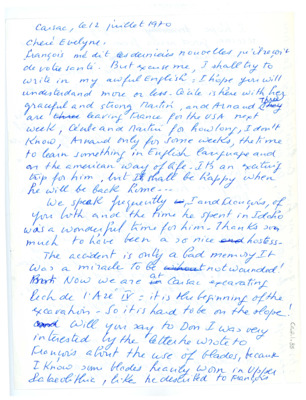 Carsac, le 12 juillet 1980
Chère Evelyne.
François m'a dit les dernières nouvelles qu'il reçoit
de votre santé. But excuse me, I shall try to
write in my awful English: I hope you will
understand more or less. Cécile is here with her
graceful and strong Martin, and Arnaud. They
are leaving France for the USA next
week, Cécile and Martin for how long, I don't
know, Arnaud only for some weeks, the time
to learn something in English language and
on the american way of life. It's an exciting
trip for him, but I shall be happy when
he will be back home...
We speak frequently, I and François, of
you both and the time he spent in Idaho
was a wonderful time for him. Thanks so
much to have been a so nice hostess.
The accident is only a bad memory. It
was a miracle to be not wounded!
Now we are at Carsac excavating
Pech de l'Azé IV: it is the beginning of the
excavation. So it is hard to be on the slope!
Will you say to Don I was very
interested by the letter he wrote to
François about the use of blades, because
I know some blades heavily worn in Upper
Paleolithic, like he described to François